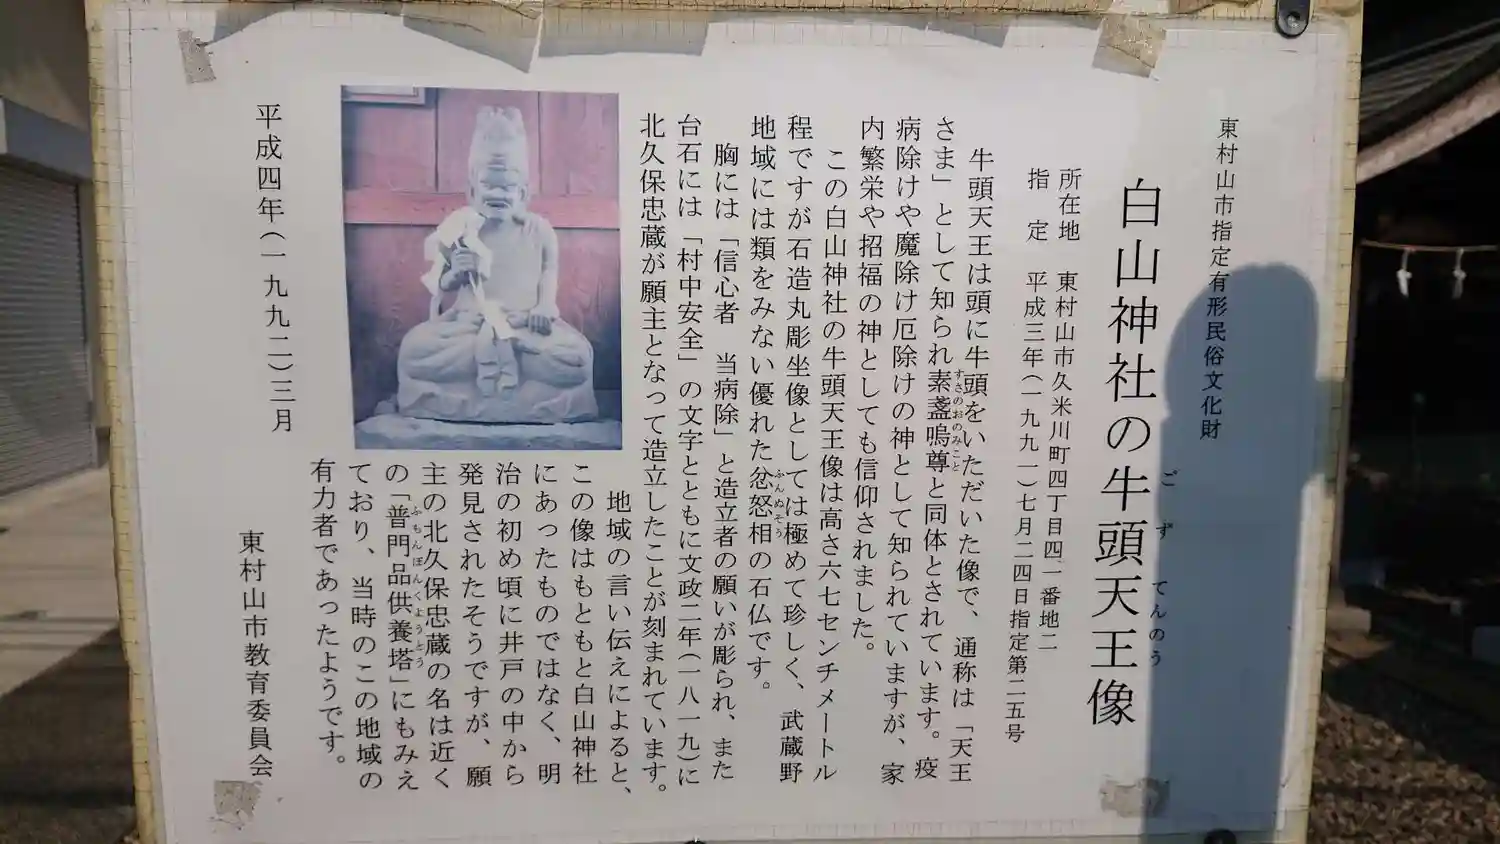 東村山市指定有形民俗文化財
白山神社の牛頭天王像
ごずてんのう
所在地　東村山市久米川町四丁目四一番地二
指　定　平成三年(一九九一)七月二四日指定第二五号
牛頭天王は頭に牛頭をいただいた像で、通称は「天王
さま」として知られ素盞嗚尊と同体とされています。疫
すさのおのみこと
病除けや魔除け厄除けの神として知られていますが、家
内繁栄や招福の神としても信仰されました。
この白山神社の牛頭天王像は高さ六七センチメートル
程ですが石造丸彫坐像としては極めて珍しく、武蔵野
地域には類をみない優れた忿怒相の石仏です。
ふんぬそう
胸には「信心者　当病除」と造立者の願いが彫られ、また
台石には「村中安全」の文字とともに文政二年(一八一九)に
北久保忠蔵が願主となって造立したことが刻まれています。
地域の言い伝えによると、
この像はもともと白山神社
にあったものではなく、明
治の初め頃に井戸の中から
発見されたそうですが、願
主の北久保忠蔵の名は近く
の「普門品供養塔」にもみえ
ふもんぼんくようとう
ており、当時のこの地域の
有力者であったようです。
平成四年(一九九二)三月
東村山市教育委員会